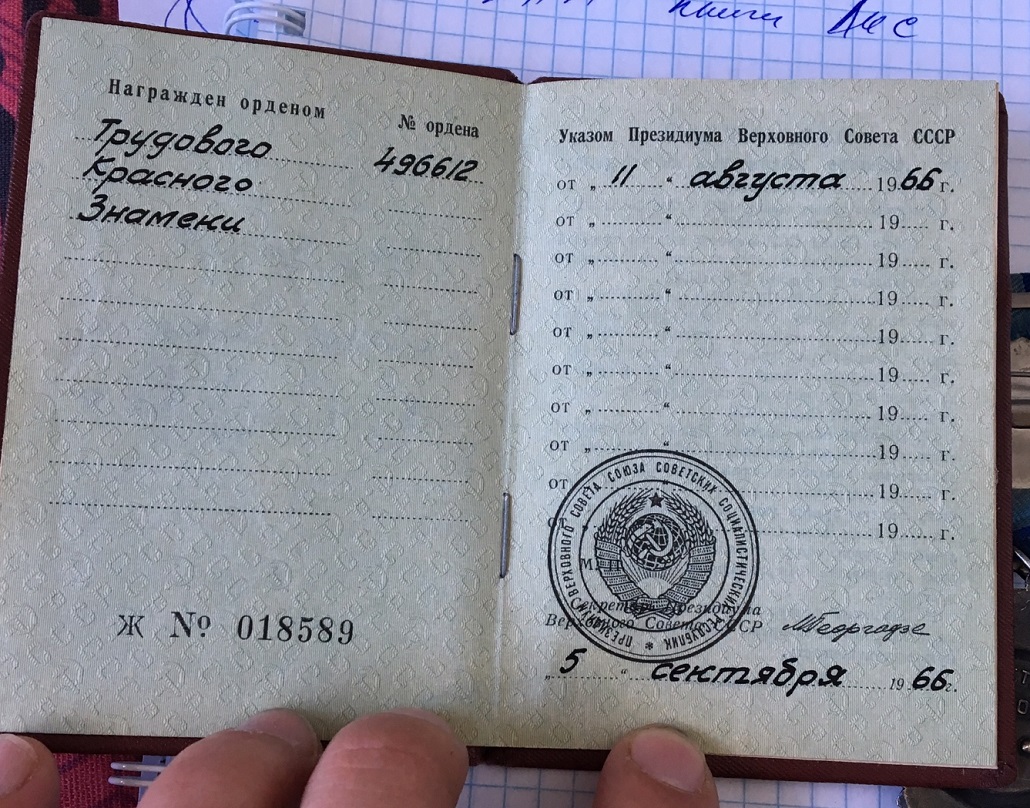 книги Дес
Награжден орденом
№ ордена
Трудового
496612
Красного
Знамени
Ж № 018589
Указом Президиума Верховного Совета СССР
от „ 11 “ августа 1966 г.
от „ “ 19 г.
от „ “ 19 г.
от „ “ 19 г.
от „ “ 19 г.
от „ “ 19 г.
от „ “ 19 г.
от „ “ 19 г.
от „ “ 19 г.
от „ “ 19 г.
ПРЕЗИДИУМ ВЕРХОВНОГО СОВЕТА СОЮЗА СОВЕТСКИХ СОЦИАЛИСТИЧЕСКИХ РЕСПУБЛИК
Секретарь Президиума
Верховного Совета СССР
МГеоргадзе
„ 5 “ сентября 1966 г.